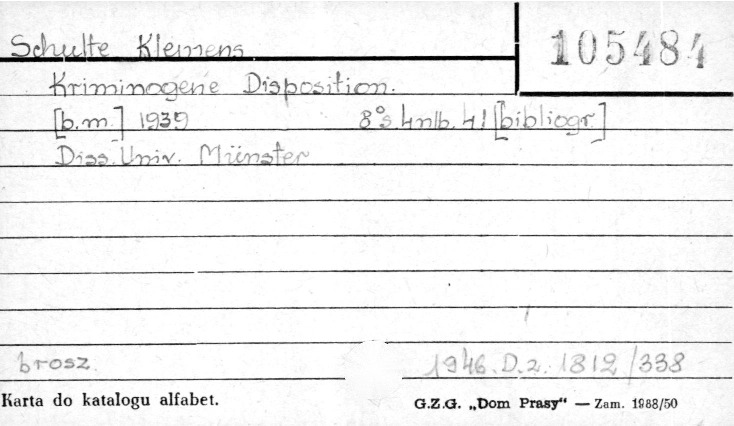 Schulte Klemens
105484
Kriminogene Disposition.
[b.m.] 1939 8° s. 4nlb. 41 [bibliogr.]
Diss. Univ. Münster
brosz. 1946. D. z. 1812/338
Karta do katalogu alfabet. G.Z.G. „Dom Prasy“ — Zam. 1988/50